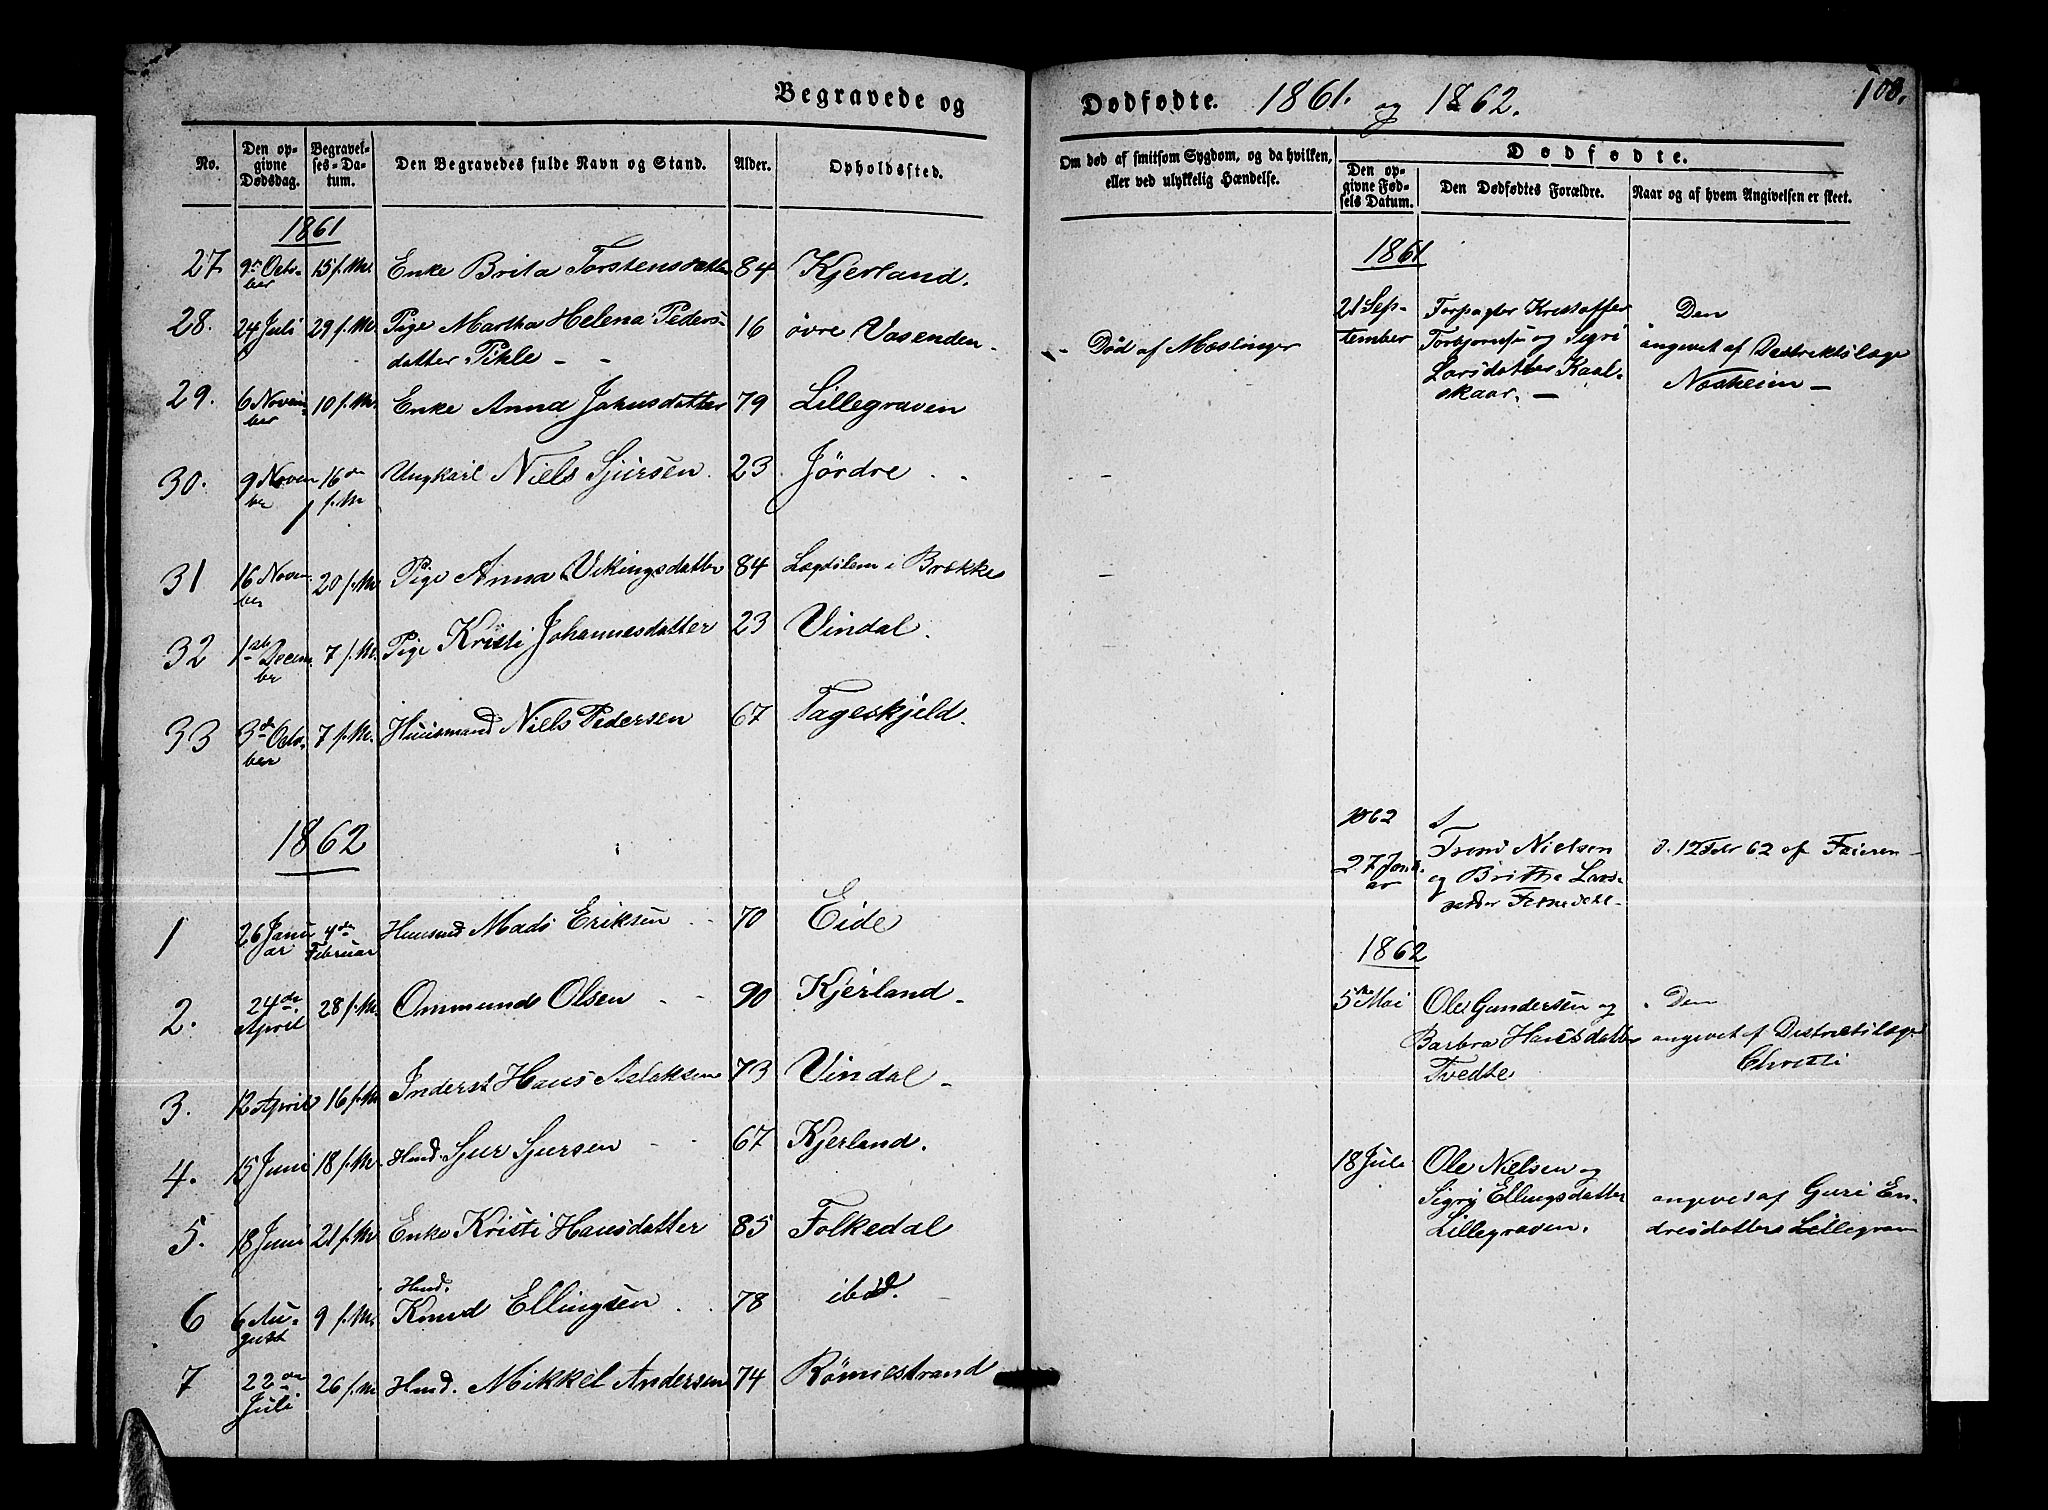 Begravede og
Dødfødte. 1861. og 1862.
100.
No.
Den opgivne Dødsdag.
Begravelses-Datum.
Den Begravedes fulde Navn og Stand.
Alder.
Opholdssted.
Om død af smitsom Sygdom, og da hvilken, eller ved ulykkelig Hændelse.
Dødfødte.
Den opgivne Fødsels Datum.
Den Dødfødtes Forældre.
Naar og af hvem Angivelsen er skeet.
1861
27 9de Octo- 15 f. M. Enke Brita Torstensdatter 84 Kjerland.
ber
28. 24 Juli 29 f. M. Pige Martha Helena Peders- 16 øvre Vasenden -
datter Pihle -
29. 6 Novem- 10 f. M. Enke Anna Johnsdatter 79 Lillegraven
ber
30. 9 Novem 16de Ungkarl Niels Sjursen. 23 Jördre
ber f. M
31 16 Novem 20 f. M Pige Anna Vikingsdatter 84 Lægdslem i Brække
ber
32 1ste Decem 7 f. M. Pige Kristi Johannesdatter 23 Vindal.
ber
33 3de Octo- 7 f. M. Huusmand Niels Pedersen 67 Tageskjeld.
ber
1862
1 26 Janu 4de Huusmd Mads Eriksen 70 Eide
ar Februar
2. 24de 28 f. M Ommund Olsen 90 Kjerland -
April
3. 12 April 16 f. M Inderst Hans Aslaksen 73 Vindal -
4. 15 Juni 18 f. M. Hmd. Sjur Sjursen 67 Kjerland.
5. 18 Juni 21 f. M Enke Kristi Hansdatter 85 Folkedal
Hmd.
6 6 Au- 9 f. M. Knud Ellingsen 78 ibd.
gust
7 22de 26 f. M Hmd. Mikkel Andersen 74 Rømnestrand
Juli
- Død af Mæslinger
1861
21 Sep- Forpagter Kristoffer Den
tember Torbjørnsen og Sigri angivet af Destriktslæge
Larsdatter Kaal- Nosheim -
skaar. -
1862
27 Janu- Trond Nielsen d. 12 Febr 62 af Faderen -
ar og Brithe Lars-
datter
1862
5te Mai Ole Gundersen og Den
Barbra Hansdatter angivet af Destrictslæge
Tvedte Christi
18 Juli Ole Nielsen og
Sigri Ellingsdatter angivet af Guri En-
Lillegraven. dresdatter Lillegraven